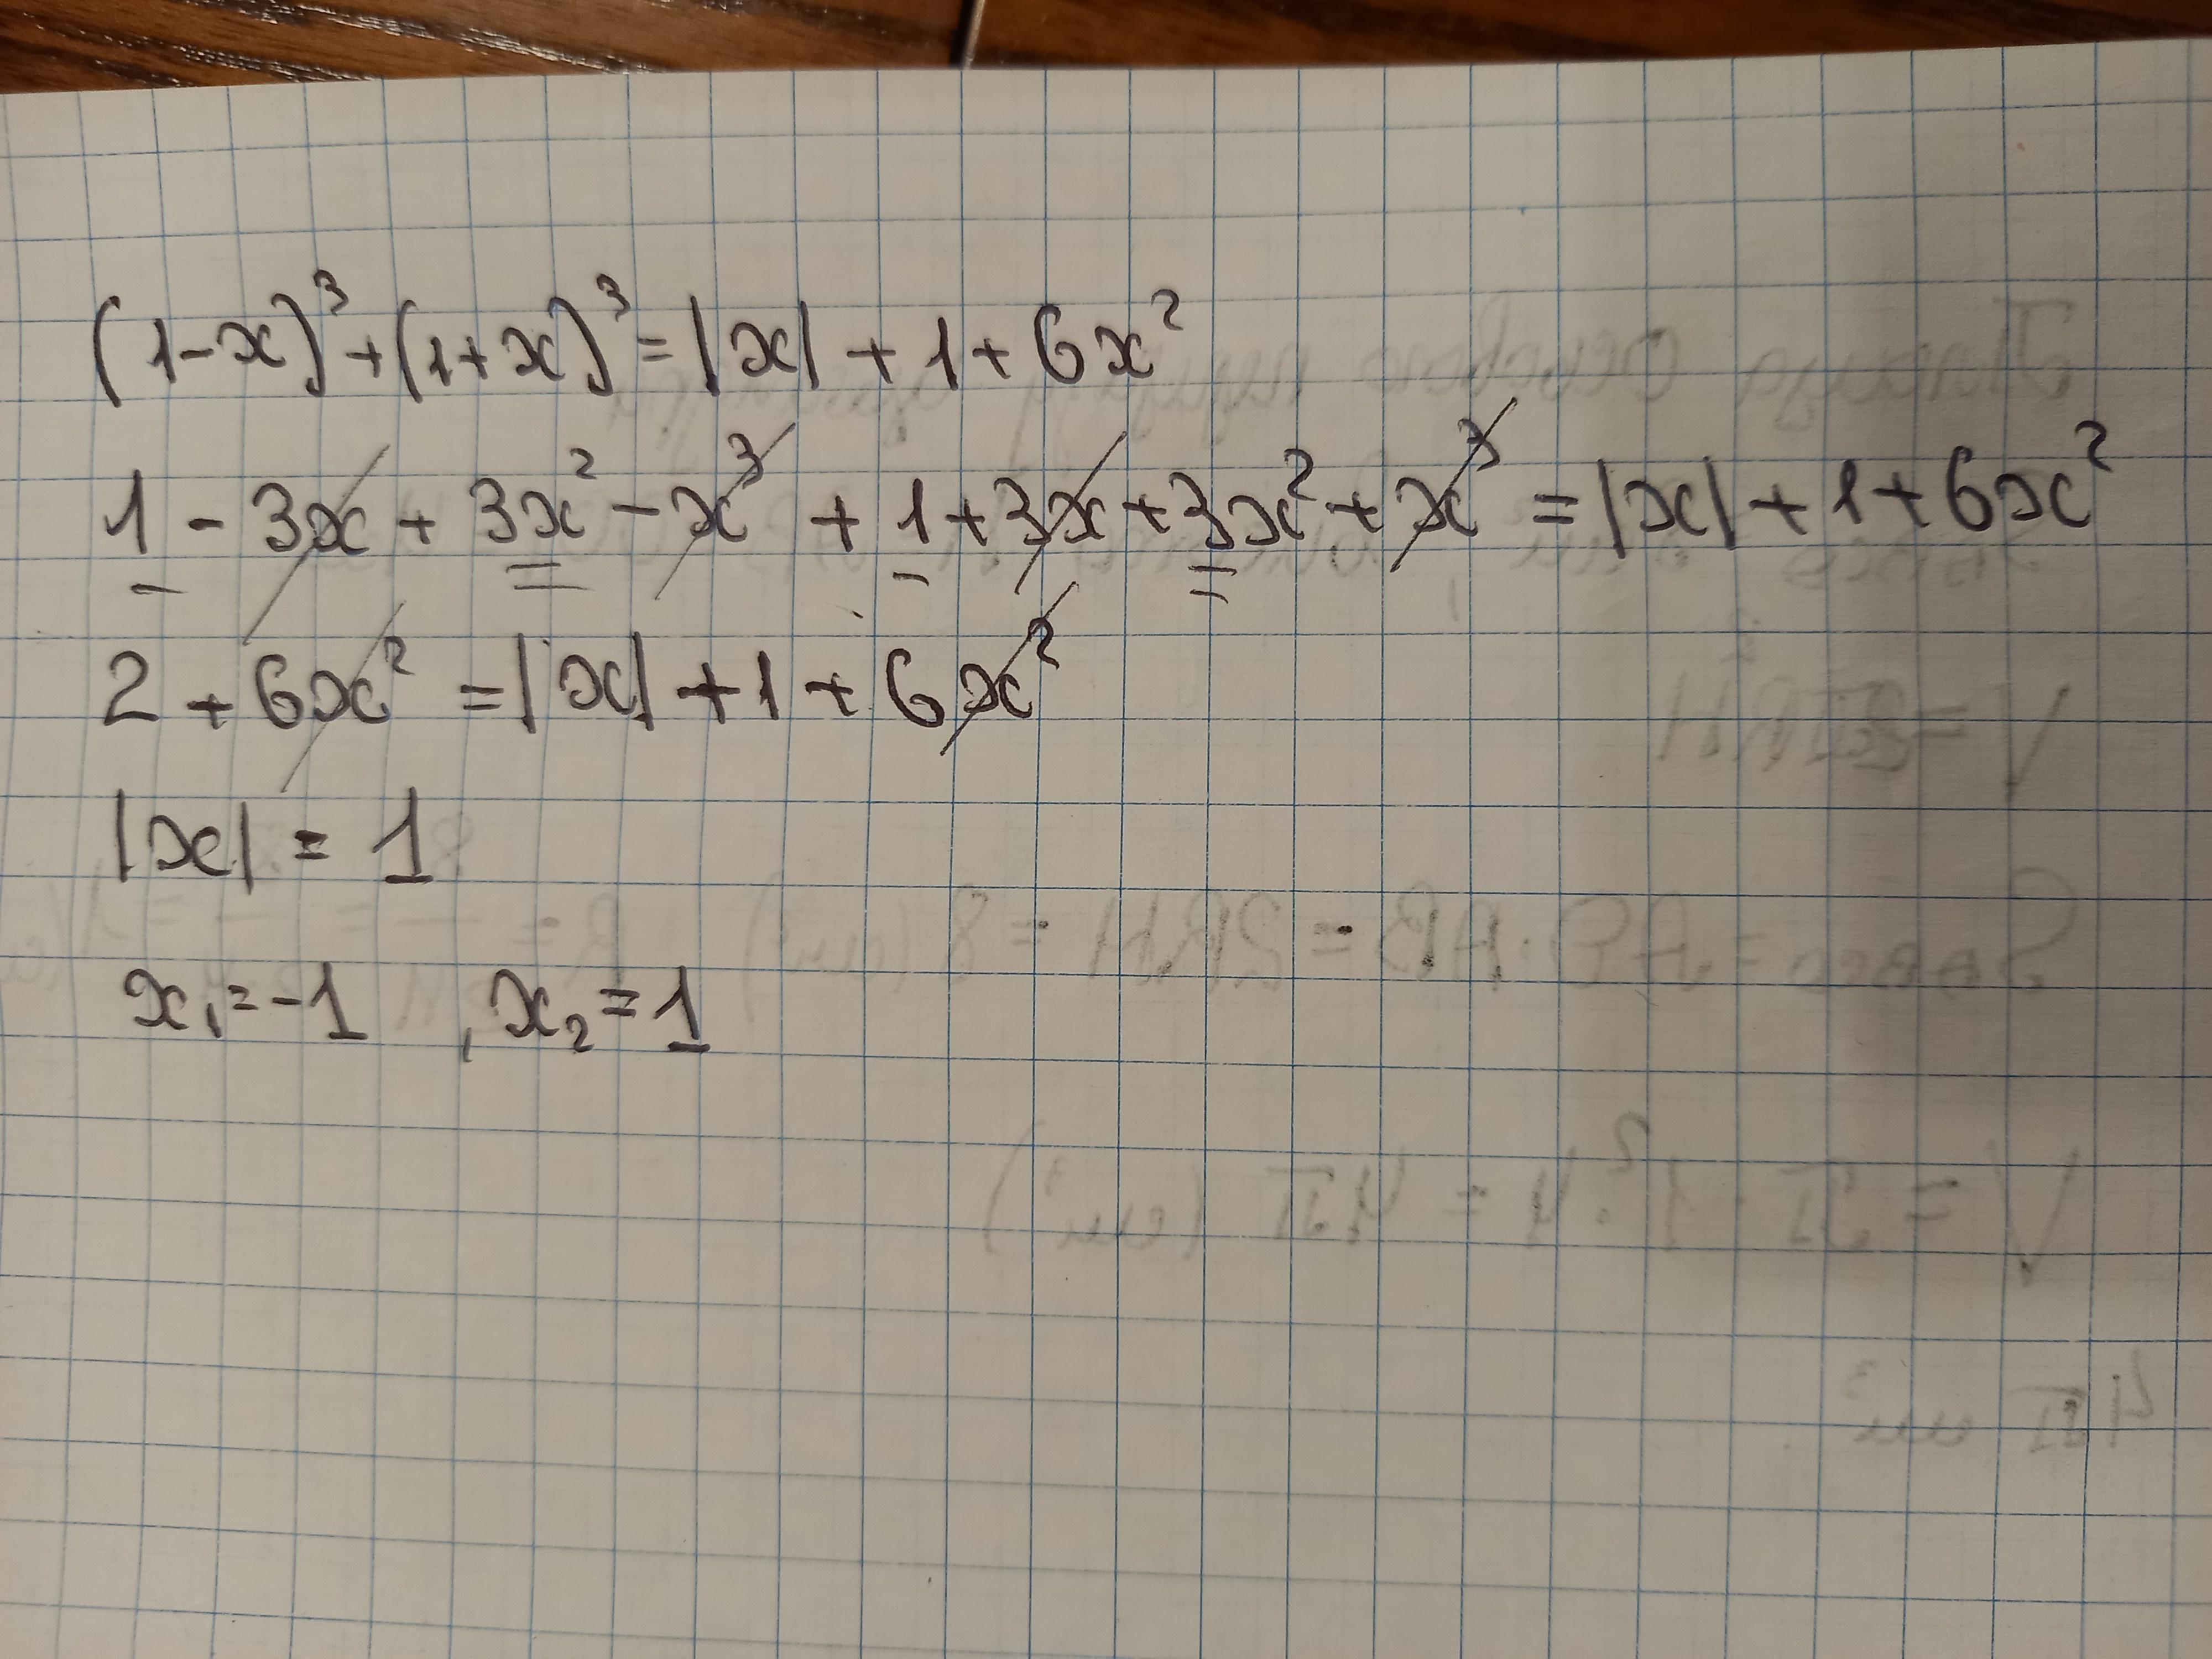 (1-x)³+(1+x)³=|x|+1+6x²
1-3x+3x²-x³+1+3x+3x²+x³=|x|+1+6x²
2+6x²=|x|+1+6x²
|x|=1
x₁=-1, x₂=1